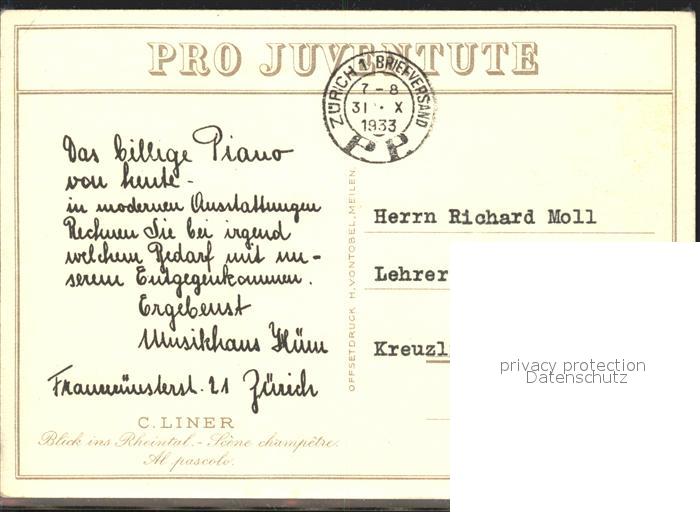 PRO JUVENTUTE
ZÜRICH 1 BRIEFVERSAND
7-8
31·X
1933
P P
Das billige Piano
von heute -
in modernen Ausstattungen
Rechnen Sie bei irgend
welchem Bedarf mit un-
serem Entgegenkommen.
Ergebenst
Musikhaus Hüni
Fraumünsterst. 21 Zürich
C. LINER
Blick ins Rheintal. - Scène champêtre.
Al pascolo.
OFFSETDRUCK H. VONTOBEL, MEILEN.
Herrn Richard Moll
Lehrer
Kreuzl
privacy protection
Datenschutz